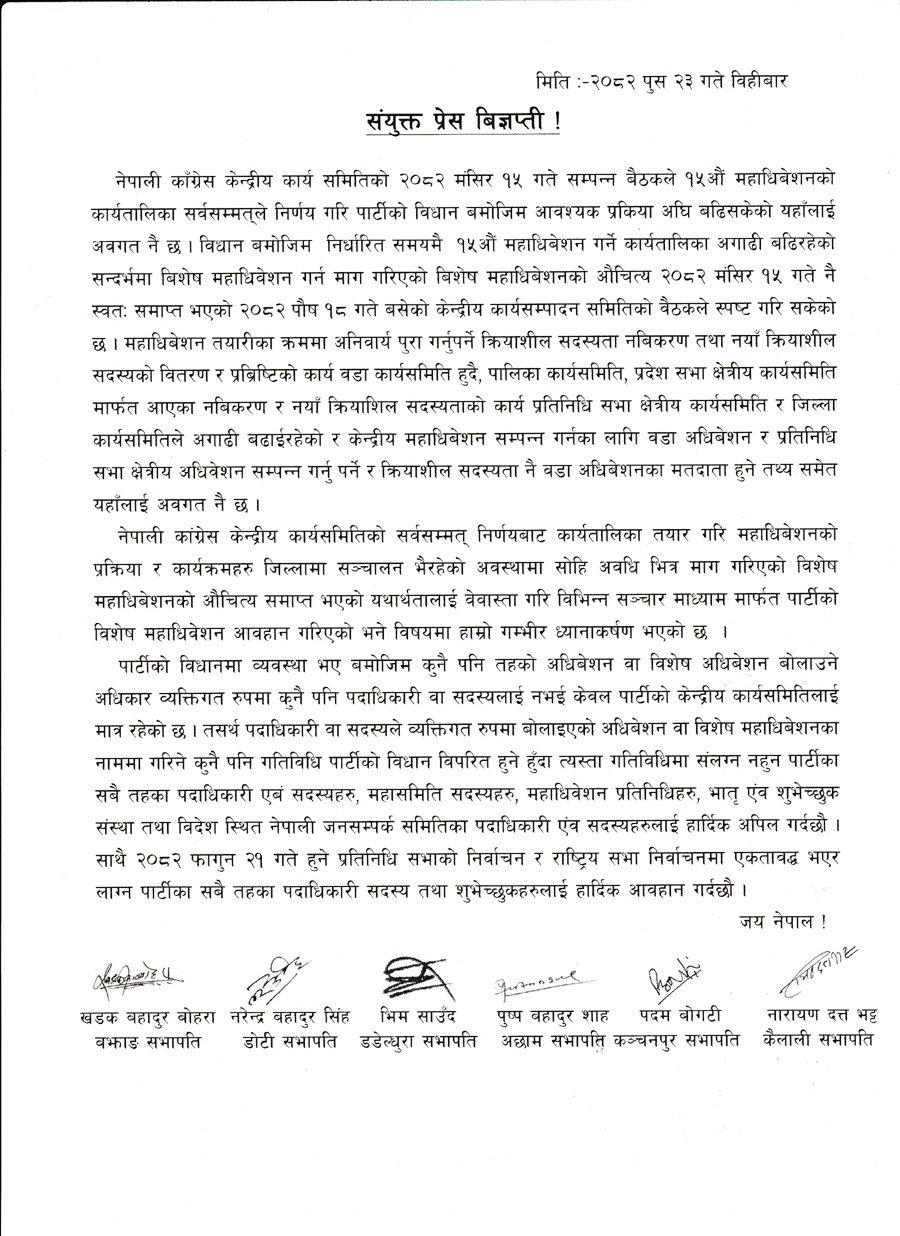 मिति :-२०८२ पुस २३ गते विहीबार
संयुक्त प्रेस बिज्ञप्ती !
नेपाली काँग्रेस केन्द्रीय कार्य समितिको २०८२ मंसिर १५ गते सम्पन्न बैठकले १५औं महाधिबेशनको
कार्यतालिका सर्वसम्मत्ले निर्णय गरि पार्टीको विधान बमोजिम आवश्यक प्रकिया अघि बढिसकेको यहाँलाई
अवगत नै छ । विधान बमोजिम निर्धारित समयमै १५औं महाधिबेशन गर्ने कार्यतालिका अगाढी बढिरहेको
सन्दर्भमा बिशेष महाधिवेशन गर्न माग गरिएको बिशेष महाधिबेशनको औचित्य २०८२ मंसिर १५ गते नै
स्वतः समाप्त भएको २०८२ पौष १८ गते बसेको केन्द्रीय कार्यसम्पादन समितिको वैठकले स्पष्ट गरि सकेको
छ । महाधिबेशन तयारीका क्रममा अनिवार्य पुरा गर्नुपर्ने क्रियाशील सदस्यता नबिकरण तथा नयाँ क्रियाशील
सदस्यको वितरण र प्रब्रिष्टिको कार्य वडा कार्यसमिति हुदै, पालिका कार्यसमिति, प्रदेश सभा क्षेत्रीय कार्यसमिति
मार्फत आएका नबिकरण र नयाँ क्रियाशिल सदस्यताको कार्य प्रतिनिधि सभा क्षेत्रीय कार्यसमिति र जिल्ला
कार्यसमितिले अगाढी बढाईरहेको र केन्द्रीय महाधिबेशन सम्पन्न गर्नका लागि वडा अधिबेशन र प्रतिनिधि
सभा क्षेत्रीय अधिवेशन सम्पन्न गर्नु पर्ने र क्रियाशील सदस्यता नै वडा अधिबेशनका मतदाता हुने तथ्य समेत
यहाँलाई अवगत नै छ ।
नेपाली कांग्रेस केन्द्रीय कार्यसमितिको सर्वसम्मत् निर्णयबाट कार्यतालिका तयार गरि महाधिबेशनको
प्रक्रिया र कार्यक्रमहरु जिल्लामा सञ्चालन भैरहेको अवस्थामा सोहि अवधि भित्र माग गरिएको विशेष
महाधिबेशनको औचित्य समाप्त भएको यथार्थतालाई वेवास्ता गरि विभिन्न सञ्चार माध्याम मार्फत पार्टीको
विशेष महाधिवेशन आवहान गरिएको भने विषयमा हाम्रो गम्भीर ध्यानाकर्षण भएको छ ।
पार्टीको विधानमा व्यवस्था भए बमोजिम कुनै पनि तहको अधिबेशन वा विशेष अधिबेशन बोलाउने
अधिकार व्यक्तिगत रुपमा कुनै पनि पदाधिकारी वा सदस्यलाई नभई केवल पार्टीको केन्द्रीय कार्यसमितिलाई
मात्र रहेको छ । तसर्थ पदाधिकारी वा सदस्यले व्यक्तिगत रुपमा बोलाइएको अधिबेशन वा विशेष महाधिबेशनका
नाममा गरिने कुनै पनि गतिविधि पार्टीको विधान विपरित हुने हुँदा त्यस्ता गतिविधिमा संलग्न नहुन पार्टीका
सबै तहका पदाधिकारी एबं सदस्यहरु, महासमिति सदस्यहरु, महाधिवेशन प्रतिनिधिहरु, भातृ एंव शुभेच्छुक
संस्था तथा विदेश स्थित नेपाली जनसम्पर्क समितिका पदाधिकारी एंव सदस्यहरुलाई हार्दिक अपिल गर्दछौ ।
साथै २०८२ फागुन २१ गते हुने प्रतिनिधि सभाको निर्वाचन र राष्ट्रिय सभा निर्वाचनमा एकतावद्ध भएर
लाग्न पार्टीका सबै तहका पदाधिकारी सदस्य तथा शुभेच्छुकहरुलाई हार्दिक आवहान गर्दछौ ।
जय नेपाल !
खडक बहादुर बोहरा नरेन्द्र बहादुर सिंह भिम साउँद पुष्प बहादुर शाह पदम बोगटी नारायण दत्त भट्ट
बझाङ सभापति डोटी सभापति डडेल्धुरा सभापति अछाम सभापति कञ्चनपुर सभापति कैलाली सभापति